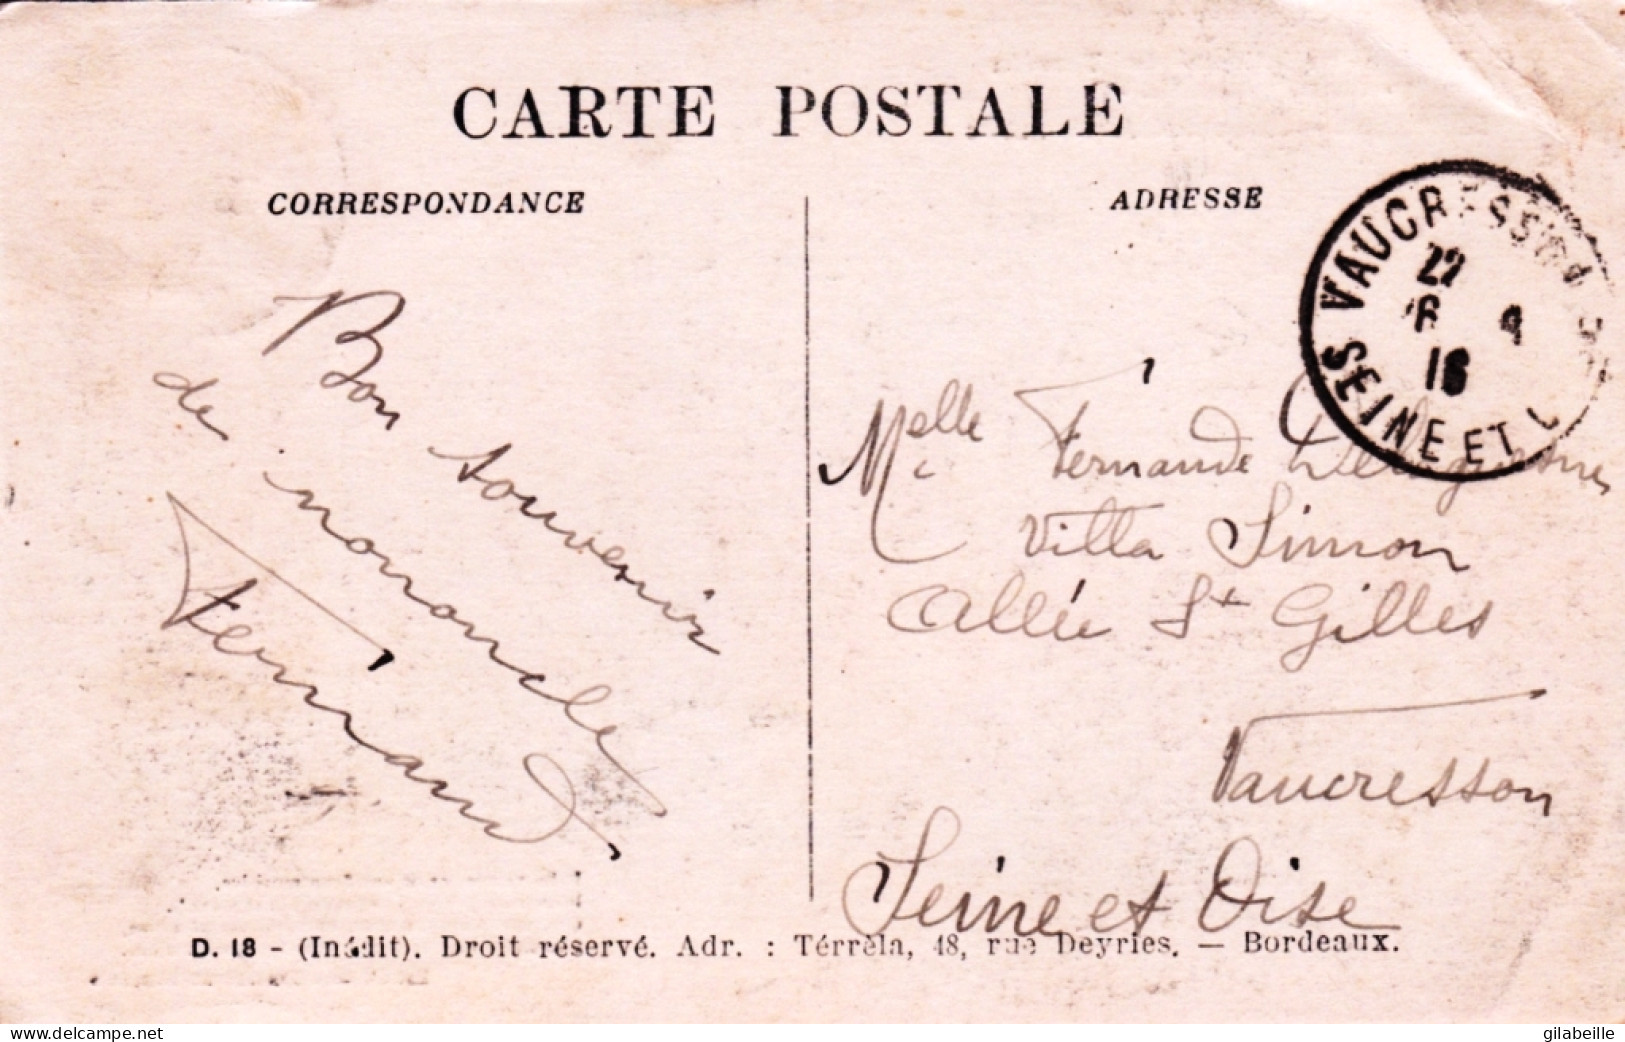 CARTE POSTALE
CORRESPONDANCE
ADRESSE
VAUCRESSON
22
6 4
16
SEINE ET
Bon souvenir
de mononcle
Fernand
Melle Fernande
Villa Simon
Allée St Gilles
Vaucresson
Seine et Oise
D. 18 - (Inédit). Droit réservé. Adr. : Térrèla, 48, rue Deyries. — Bordeaux.
delcampe.net
gilabeille